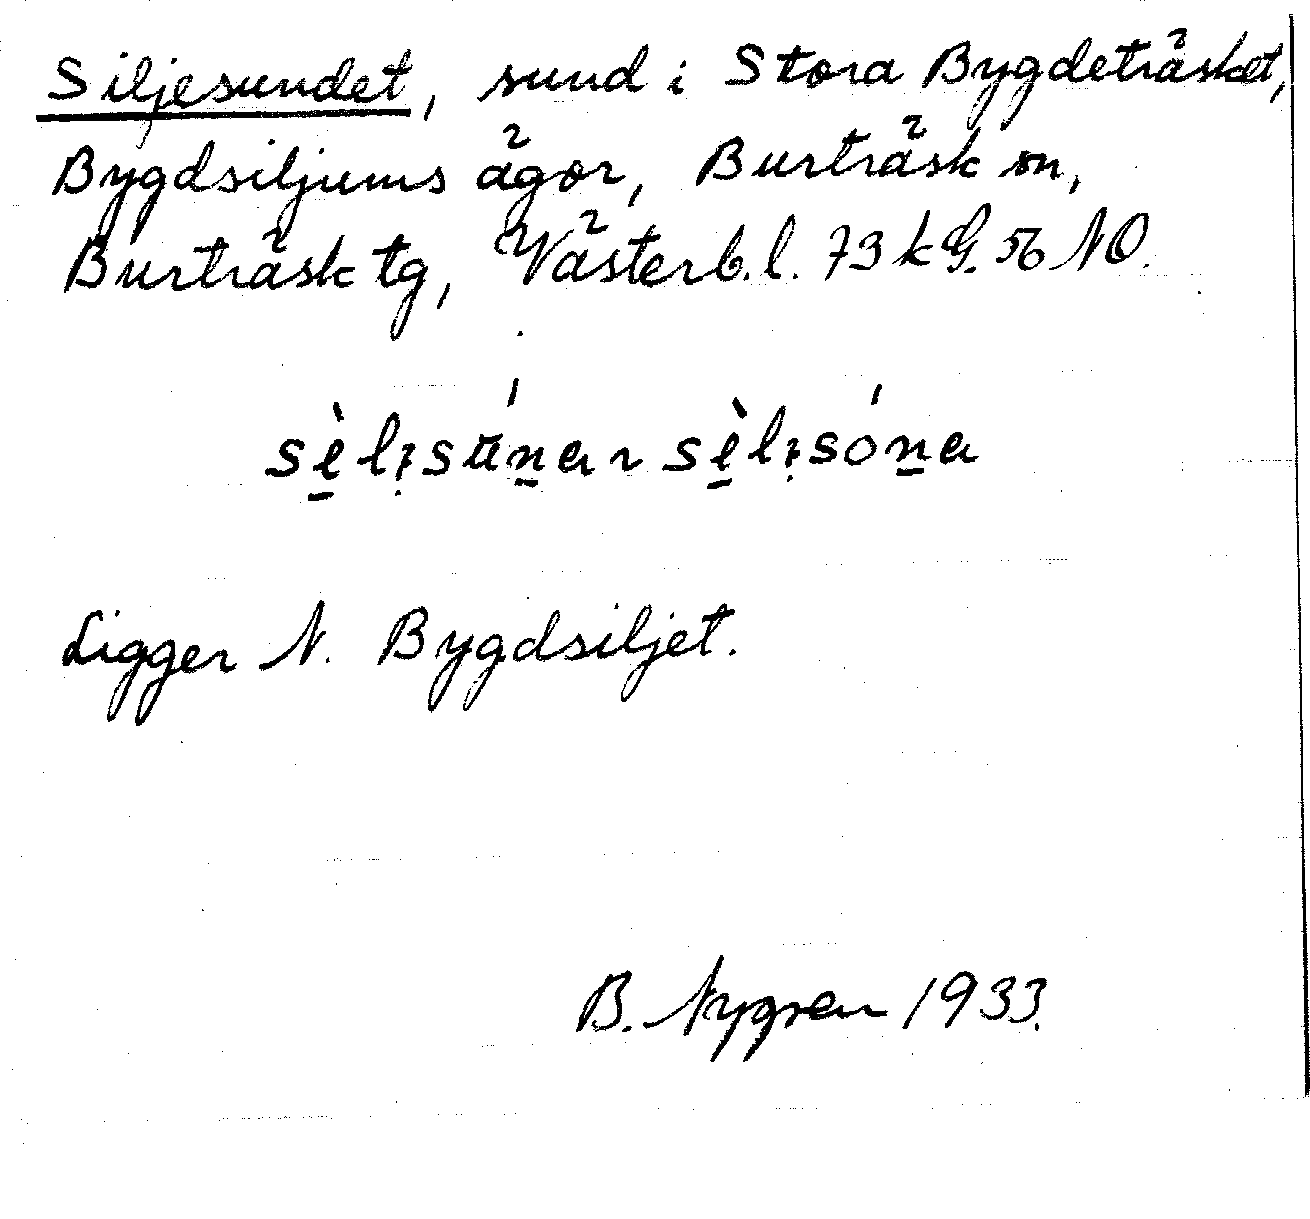 Siljesundet, sund i Stora Bygdeträsket,
Bygdsiljums ägor, Burträsk sn,
Burträsk tg, Västerb. l. 73 k G. 56 NO.
Ligger N. Bygdsiljet.
B. Nygren 1933.